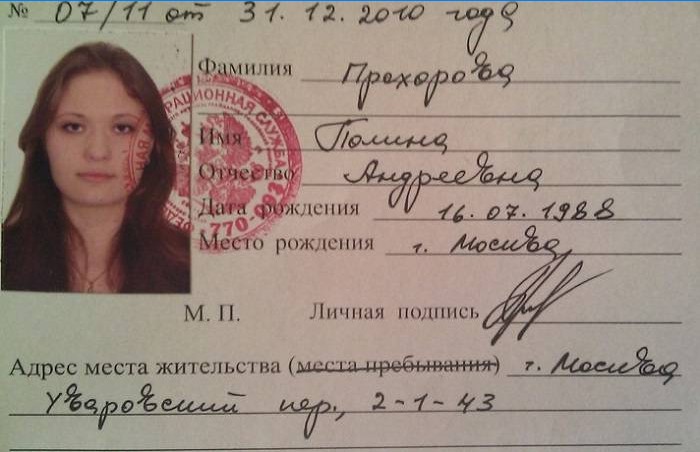 № 07/11 от 31.12.2010 года
Фамилия Прохорова
Имя Полина
Отчество Андреевна
Дата рождения 16.07.1988
Место рождения г. Москва
М. П. Личная подпись
Адрес места жительства (места пребывания) г. Москва
Уваровский пер., 2-1-43
РАЦИОННАЯ СЛУЖБА